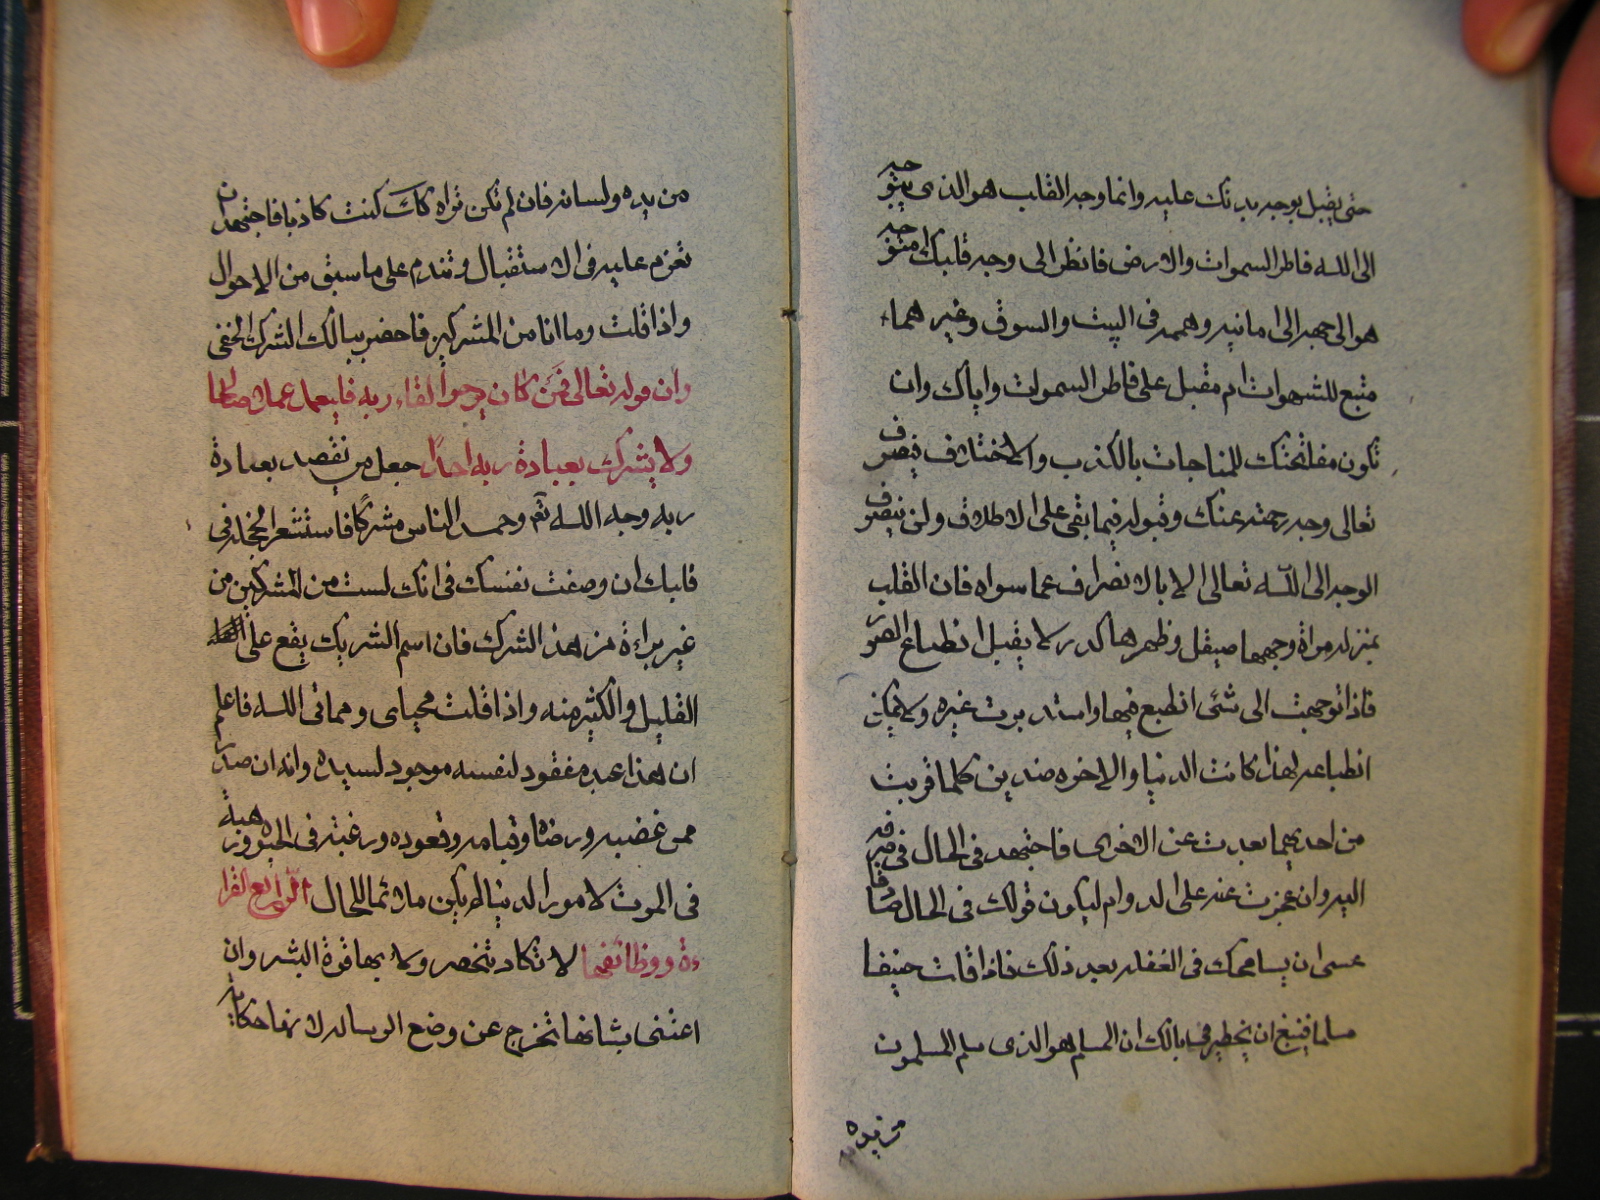 حتى يقبل بوجه بدنك عليه وانما وجه القلب هو الذى يتوجه
الى الله فاطر السموات والارض فانظر الى وجه قلبك امتوجه
هو الى جهه الى امانيه وهممه فى البيت والسوق وغيرهماء
متبع للشهوات ام مقبل على فاطر السموات واياك وان
تكون مفاتحتك للمناجات بالكذب والاختلاف فيصرف
تعالى وجه رحمته عنك وقبوله فيما بقى على الاطلاق ولن ينصرف
الوجه الى الله تعالى الا بالانصراف عما سواه فان القلب
بمنزله مراة وجهها صيقل وظهرها كدر لا يقبل انطباع الصور
فاذا توجهت الى شئ انطبع فيها واستدبرت غيره ولا يمكن
انطباعه لهذا كانت الدنيا والاخره ضدين كلما قربت
من احديهما بعدت عن الاخرى فاجتهد فى الحال فى صرفه
اليه وان عجزت عنه على الدوام ليكون قولك فى الحال صادقا
عسى ان يسامحك فى الغفله بعد ذلك فاذا قلت حنيفا
مسلما فينبغ ان يخطر فى بالك ان المسلم هو الذى سلم المسلمون
من يده
من يده ولسانه فان لم تكن تراه كذلك كنت كاذبا فاجتهد ان
تعزم عليه فى الاستقبال وتندم على ما سبق من الاحوال
واذا قلت وما انا من المشركين فاحضر ببالك الشرك الخفى
وان قوله تعالى فمن كان يرجوا لقاء ربه فليعمل عملا صالحا
ولا يشرك بعبادة ربه احدا جعل من يقصد بعبادة
ربه وجه الله تعم وحمد الناس مشركا فاستشعر الخجله فى
قلبك ان وصفت نفسك فى انك لست من المشركين من
غير براءة من هذ الشرك فان اسم الشريك يقع على
القليل والكثير منه واذا قلت محياى ومماتى الله فاعلم
ان هذا عبده مفقود لنفسه موجود لسيده وانه ان صدر
ممن غضبه ورضاه وقيامه وقعوده ورغبته فى الحيوة ورهبة
فى الموت لامور الدنيا لم يكن ملائما للحال الرابع القرا
ءة ووظائفها لا تكاد تنحصر ولا بها قوة البشر وان
اعتنى بشانها تخرج عن وضع الرساله لانها حكاية